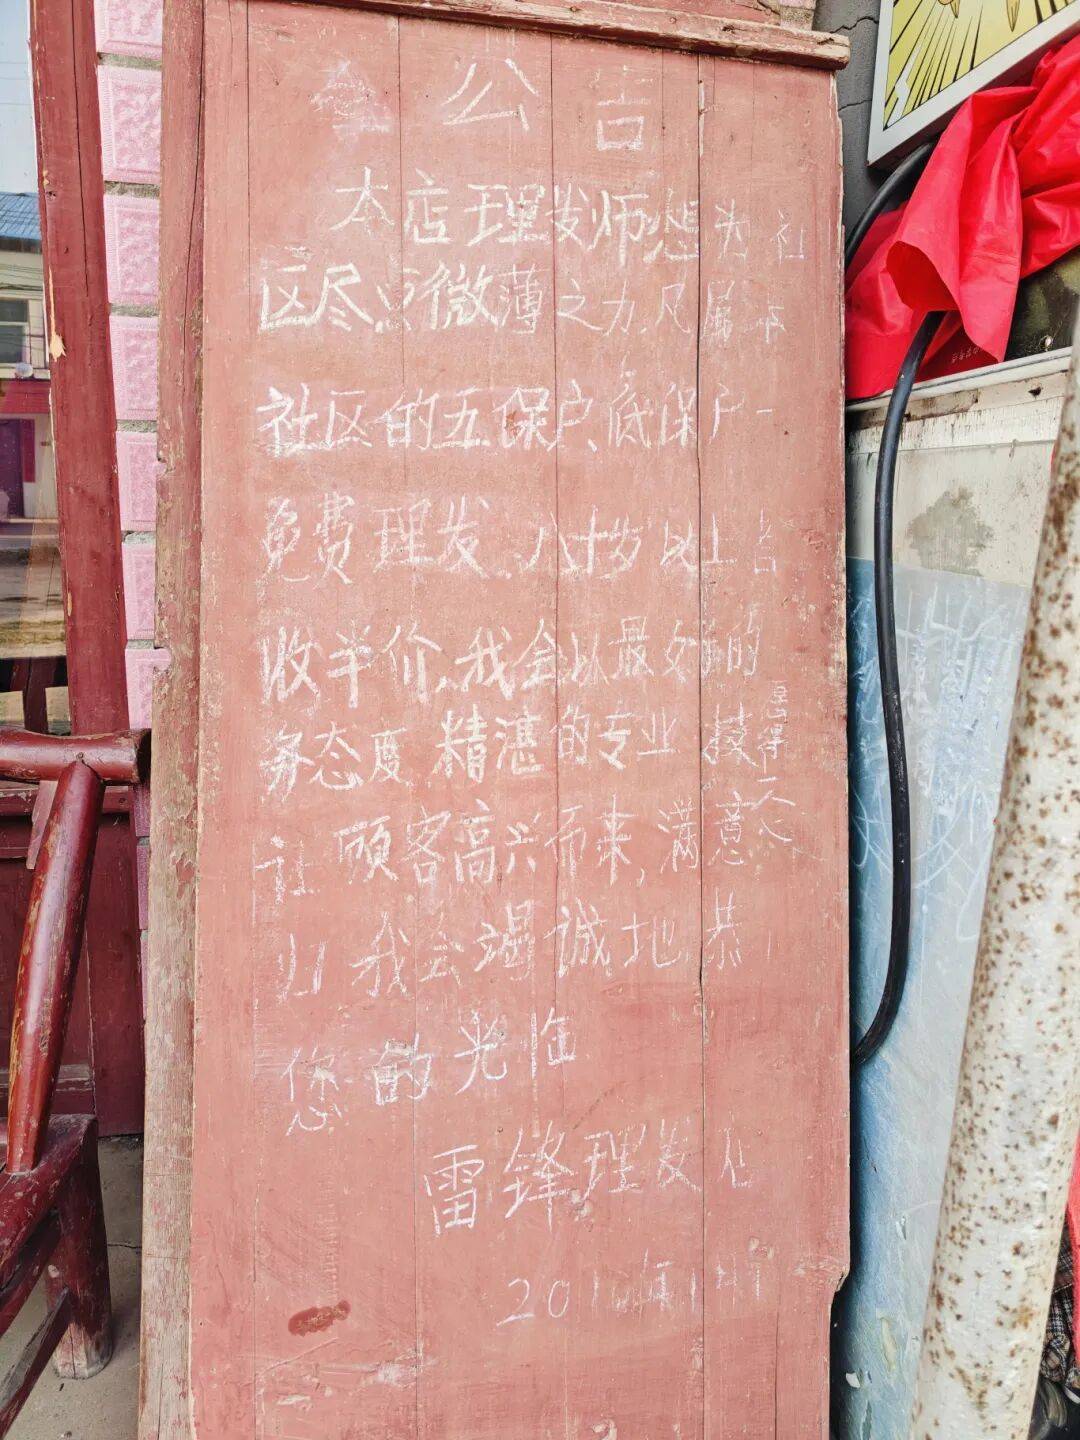 公告
本店理发师想为社
区尽点微薄之力,凡属本
社区的五保户、底保户一
免费理发,八十岁以上
收半价,我会以最好的
务态度 精湛的专业技
让顾客高兴而来,满意
我会竭诚地恭
您的光临
雷锋理发